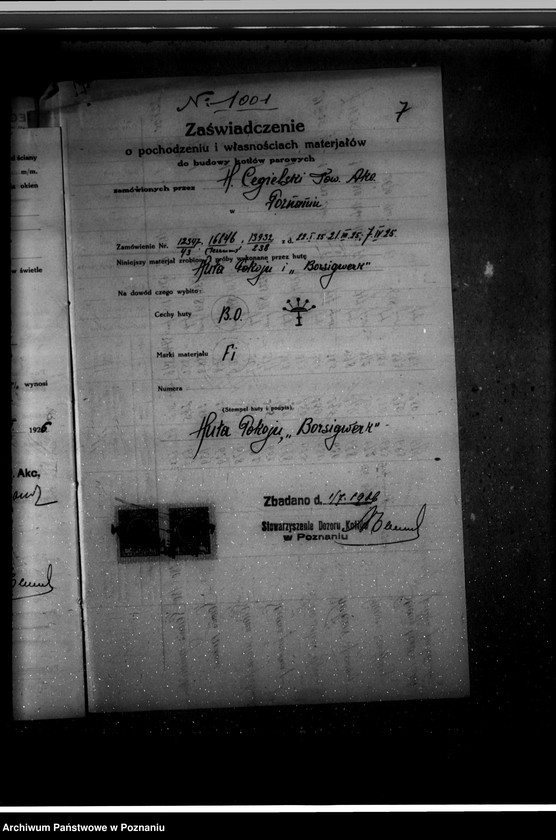 Nr 1001
7
Zaświadczenie
o pochodzeniu i własnościach materjałów
do budowy kotłów parowych
zamówionych przez H. Cegielski Tow. Akc.
w Poznaniu
Zamówienie Nr. 12347/43 16846 13932/238 z d.
Niniejszy materjał zrobiono i próby wykonane przez hutę
Huta Pokoju i „Borsigwerk"
Na dowód czego wybito:
Cechy huty B.O.
Marki materjału Fi
Numera
(Stempel huty i podpis).
Huta Pokoju, „Borsigwerk"
Zbadano d. 1/7. 1926
Stowarzyszenie Dozoru Kotłów
w Poznaniu
m/m.
okien
w świetle
wynosi
1926
Akc,
Archiwum Państwowe w Poznaniu